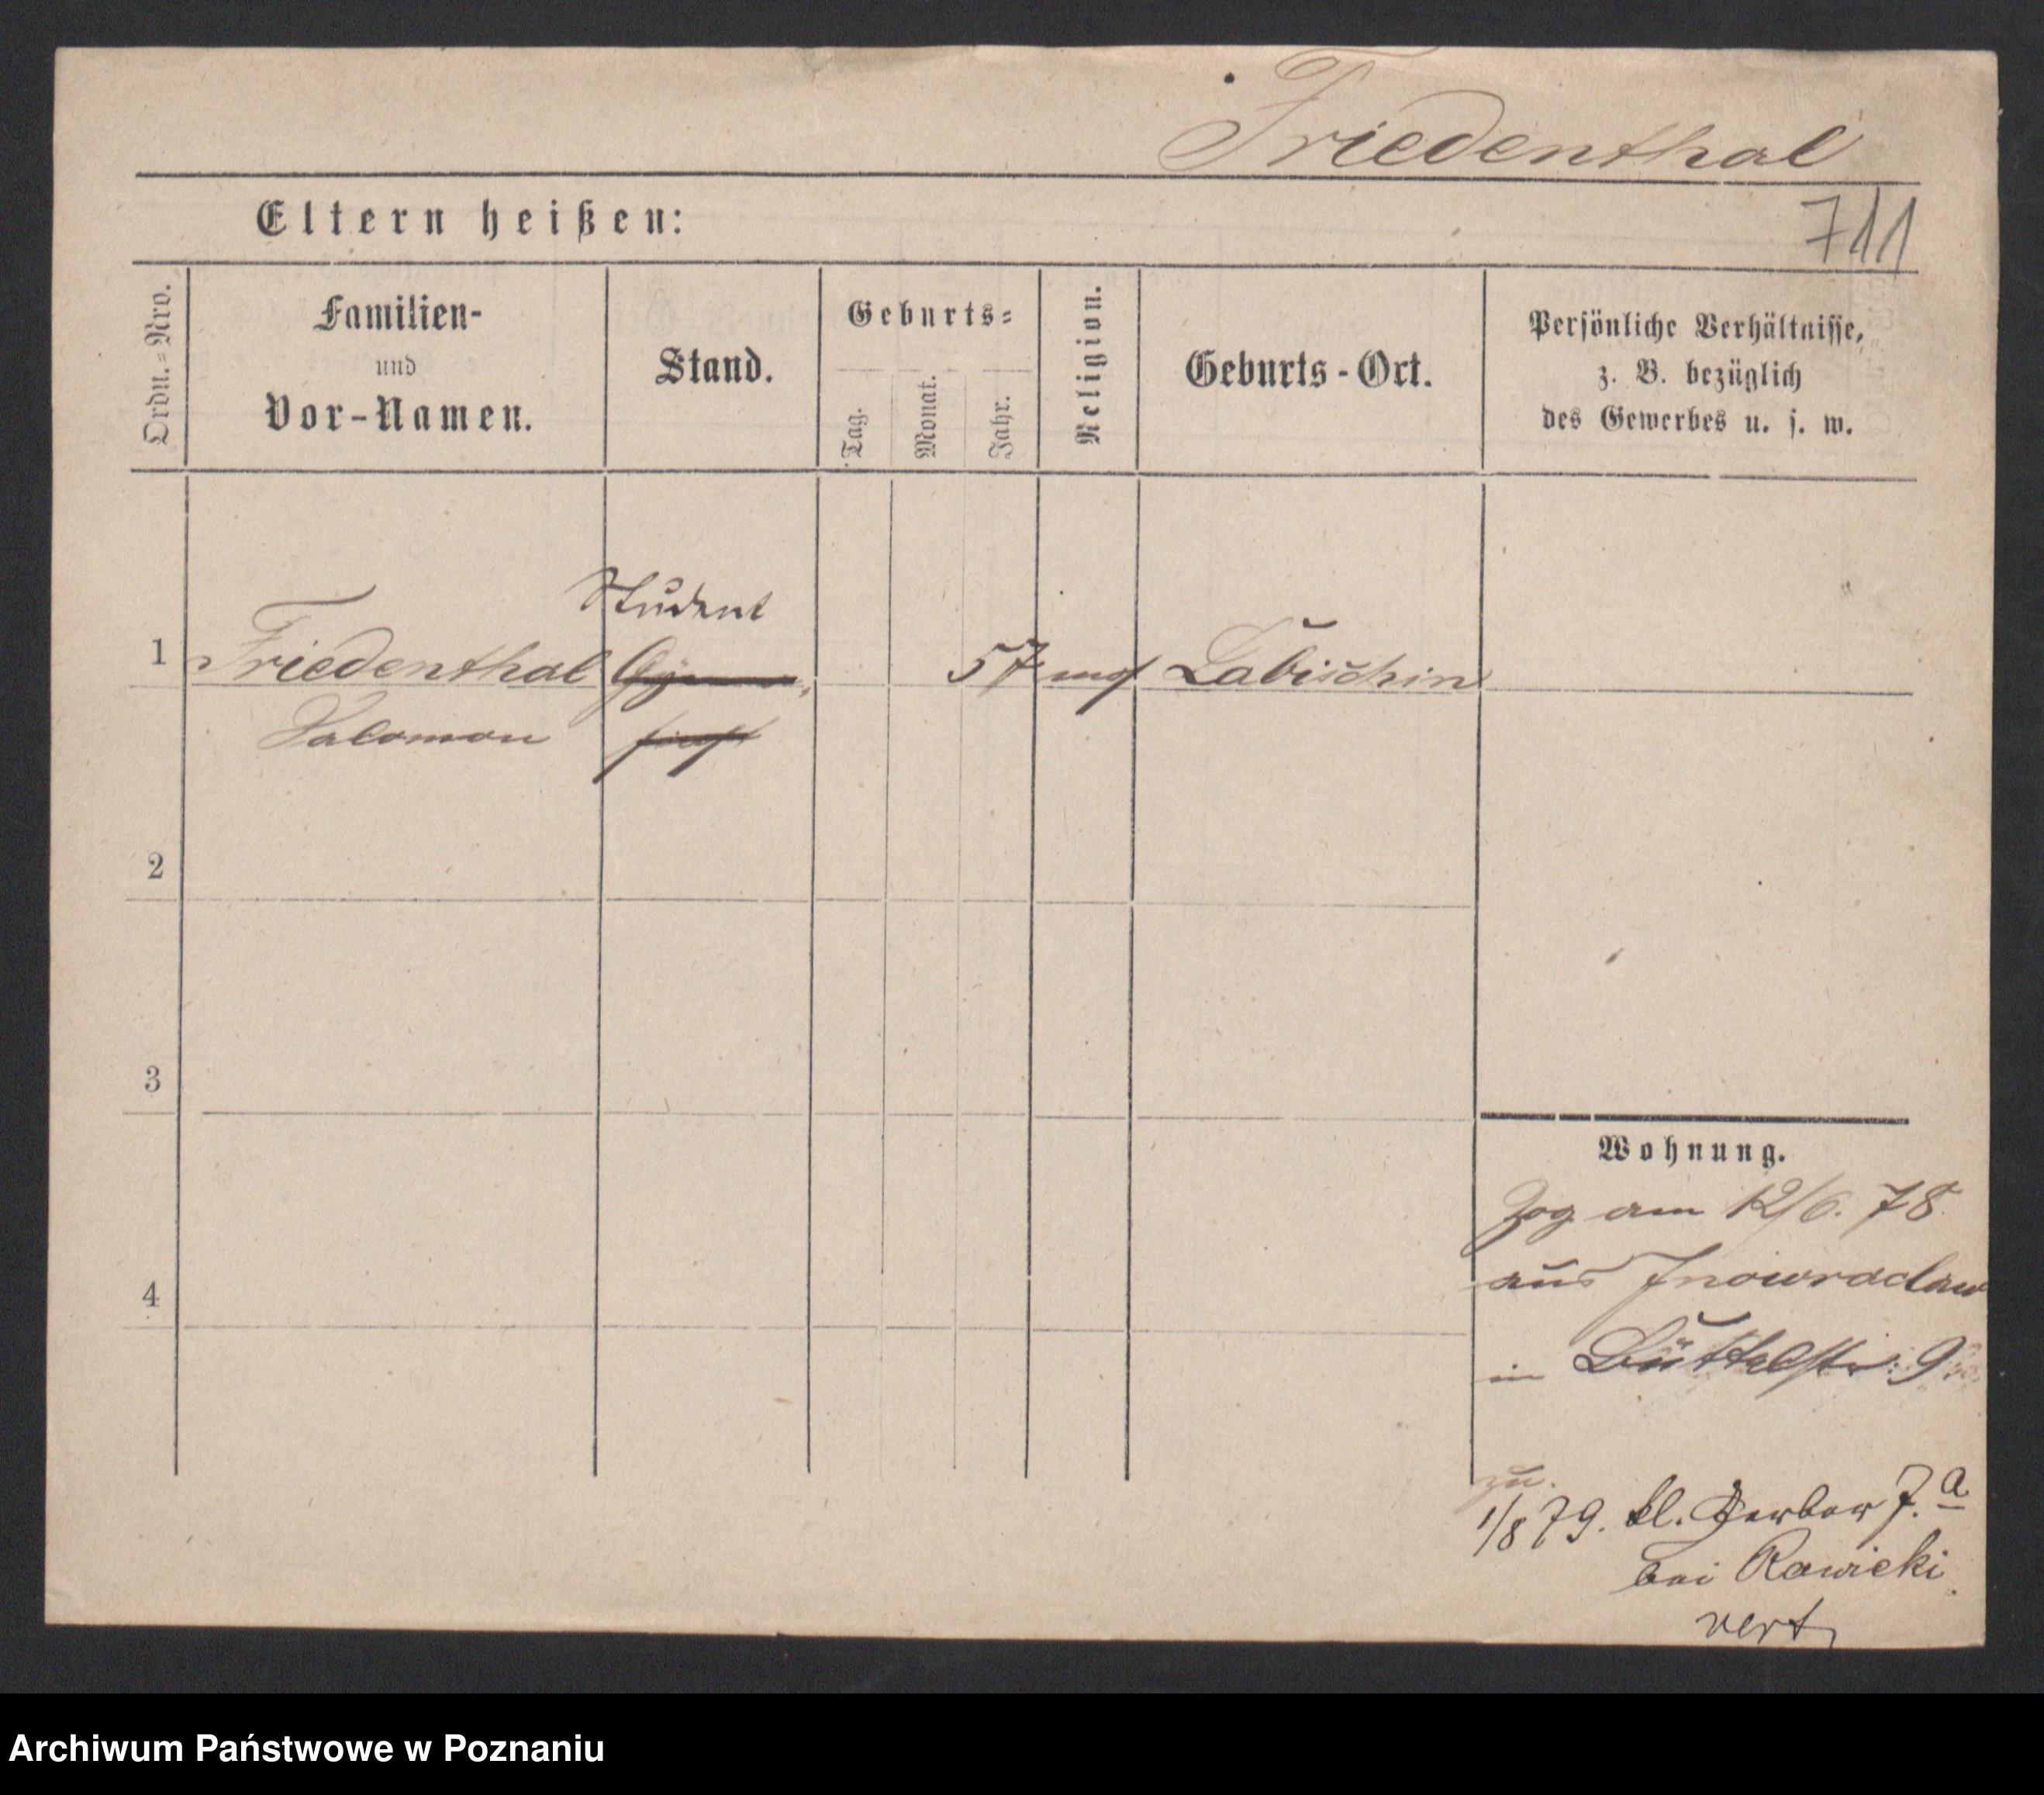 Friedenthal
Eltern heißen:
711
Ordn.=Nro.
Familien-
und
Vor-Namen.
Stand.
Geburts=
Tag.
Monat.
Jahr.
Religion.
Geburts-Ort.
Persönliche Verhältnisse,
z. B. bezüglich
des Gewerbes u. s. w.
Student
1 Friedenthal 57 mos Labischin
Salomon
2
3
4
Wohnung.
Zog am 12/6. 78
aus Inowraclaw
in Büttelstr. 9
zu.
1/8 79. kl. Gerber 7.a
bei Rawicki
vert
Archiwum Państwowe w Poznaniu